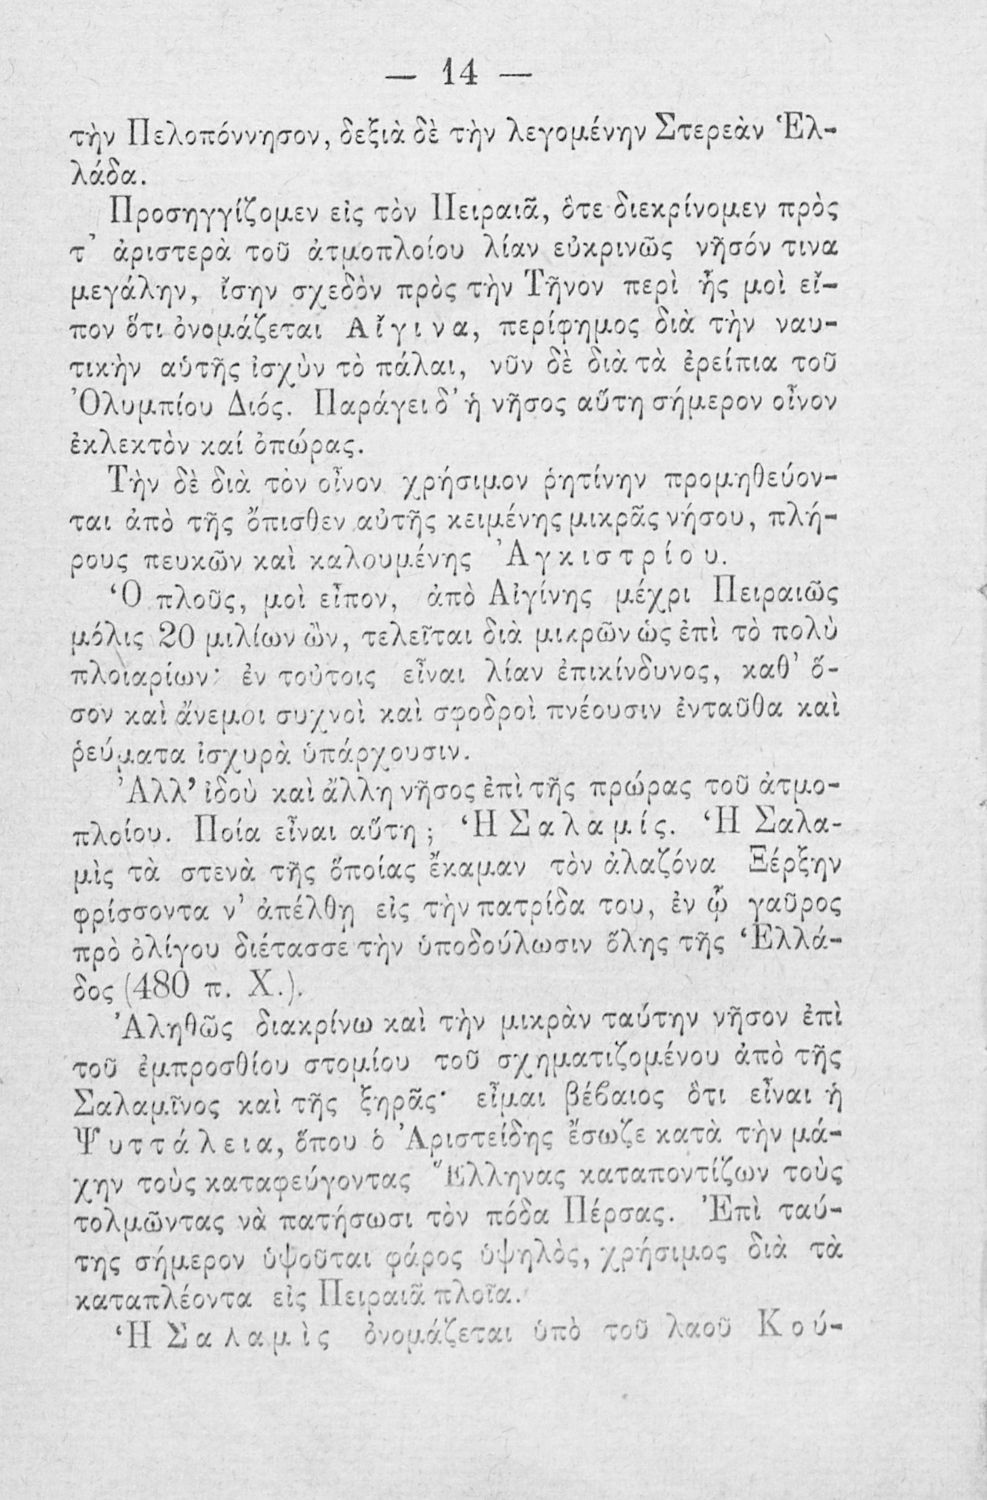 — 14 —
τὴν Πελοπόννησον, δεξιὰ δὲ τὴν λεγομένην Στερεὰν Ἑλ-
λάδα.
Προσηγγίζομεν εἰς τὸν Πειραιᾶ, ὅτε διεκρίνομεν πρὸς
τ᾿ ἀριστερὰ τοῦ ἀτμοπλοίου λίαν εὐκρινῶς νῆσόν τινα
μεγάλην, ἴσην σχεδὸν πρὸς τὴν Τῆνον περὶ ἧς μοὶ εἶ-
πον ὅτι ὀνομάζεται Αἴγινα, περίφημος διὰ τὴν ναυ-
τικὴν αὑτῆς ἰσχὺν τὸ πάλαι, νῦν δὲ διὰ τὰ ἐρείπια τοῦ
Ὀλυμπίου Διός. Παράγει δ᾿ ἡ νῆσος αὕτη σήμερον οἶνον
ἐκλεκτὸν καί ὀπώρας.
Τὴν δὲ διὰ τὸν οἶνον χρήσιμον ῥητίνην προμηθεύον-
ται ἀπὸ τῆς ὄπισθεν αὐτῆς κειμένης μικρᾶς νήσου, πλή-
ρους πευκῶν καὶ καλουμένης Ἀγκιστρίου.
Ὁ πλοῦς, μοὶ εἶπον, ἀπὸ Αἰγίνης μέχρι Πειραιῶς
μόλις 20 μιλίων ὢν, τελεῖται διὰ μικρῶν ὡς ἐπὶ τὸ πολὺ
πλοιαρίων· ἐν τούτοις εἶναι λίαν ἐπικίνδυνος, καθ᾿ ὅ-
σον καὶ ἄνεμοι συχνοὶ καὶ σφοδροὶ πνέουσιν ἐνταῦθα καὶ
ῥεύματα ἰσχυρὰ ὑπάρχουσιν.
Ἀλλ᾿ ἰδοὺ καὶ ἄλλη νῆσος ἐπὶ τῆς πρώρας τοῦ ἀτμο-
πλοίου. Ποία εἶναι αὕτη; Ἡ Σαλαμίς. Ἡ Σαλα-
μὶς τὰ στενὰ τῆς ὁποίας ἔκαμαν τὸν ἀλαζόνα Ξέρξην
φρίσσοντα ν᾿ ἀπέλθῃ εἰς τὴν πατρίδα του, ἐν ᾧ γαῦρος
πρὸ ὀλίγου διέτασσε τὴν ὑποδούλωσιν ὅλης τῆς Ἑλλά-
δος (480 π. Χ.).
Ἀληθῶς διακρίνω καὶ τὴν μικρὰν ταύτην νῆσον ἐπὶ
τοῦ ἐμπροσθίου στομίου τοῦ σχηματιζομένου ἀπὸ τῆς
Σαλαμῖνος καὶ τῆς ξηρᾶς· εἶμαι βέβαιος ὅτι εἶναι ἡ
Ψυττάλεια, ὅπου ὁ Ἀριστείδης ἔσωζε κατὰ τὴν μά-
χην τοὺς καταφεύγοντας Ἕλληνας καταποντίζων τοὺς
τολμῶντας νὰ πατήσωσι τὸν πόδα Πέρσας. Ἐπὶ ταύ-
της σήμερον ὑψοῦται φάρος ὑψηλὸς, χρήσιμος διὰ τὰ
καταπλέοντα εἰς Πειραιᾶ πλοῖα.
Ἡ Σαλαμὶς ὀνομάζεται ὑπὸ τοῦ λαοῦ Κού-